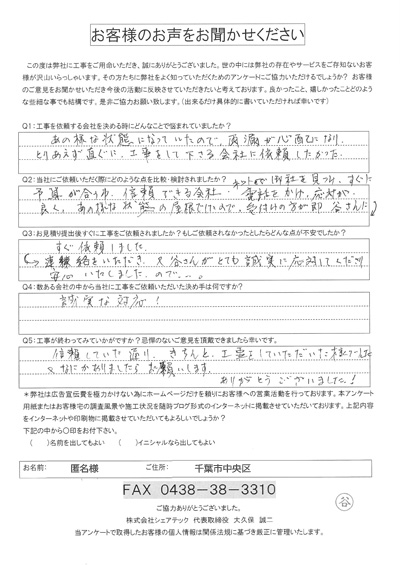 お客様のお声をお聞かせください
この度は弊社に工事をご用命いただき、誠にありがとうございました。世の中には弊社の存在やサービスをご存知ないお客
様が沢山いらっしゃいます。その方たちに弊社をよく知っていただくためのアンケートにご協力いただけるでしょうか? お客様
のご意見をお聞かせいただき今後の活動に反映させていただきたいと考えております。良かったこと、嬉しかったことどのよう
な些細な事でも結構です。是非ご協力お願い致します。(出来るだけ具体的に書いていただければ幸いです)
Q1:工事を依頼する会社を決める時にどんなことで悩まれていましたか?
あの様な状態になっていたので、雨漏が心配になり
とりあえず直ぐに、工事をして下さる会社に依頼したかった。
Q2:当社にご依頼いただく際にどのような点を比較・検討されましたか?
ネットで御社を見つけ、すぐに
予算が合う事、信頼できる会社。電話をかけ、応対が
良く、あの様な状態の屋根だけので、受付けの方が即 谷さんに
Q3:お見積り提出後すぐに工事をご依頼されましたか?もしご依頼されなかったとしたらどんな点が不安でしたか?
すぐ依頼しました。
連絡をいただき、又谷さんがとても誠実に応対してくださり
安心いたしましたので…。
Q4:数ある会社の中から当社に工事をご依頼いただいた決め手は何ですか?
誠実な対応!
Q5:工事が終わってみていかがですか?忌憚のないご意見を頂戴できましたら幸いです。
信頼していた通り、きちんと、工事をしていただいた様
又なにかありましたらお願いします。
ありがとうございました!
*弊社は広告宣伝費を極力かけない為にホームページだけを頼りにお客様への営業活動を行っております。本アンケート
用紙またはお客様宅の調査風景や施工状況を随時ブログ形式のインターネットに掲載させていただいております。上記内容
をインターネットや印刷物に掲載させていただいてもよろしいでしょうか?
下記の中から〇印をお付下さい。
( )名前を出してもよい ( )イニシャルなら出してもよい
お名前: 匿名様 ご住所: 千葉市中央区
FAX 0438-38-3310
ご協力ありがとうございました。
谷
株式会社シェアテック 代表取締役 大久保 誠二
当アンケートで取得したお客様の個人情報は関係法規に基づき厳正に管理いたします。